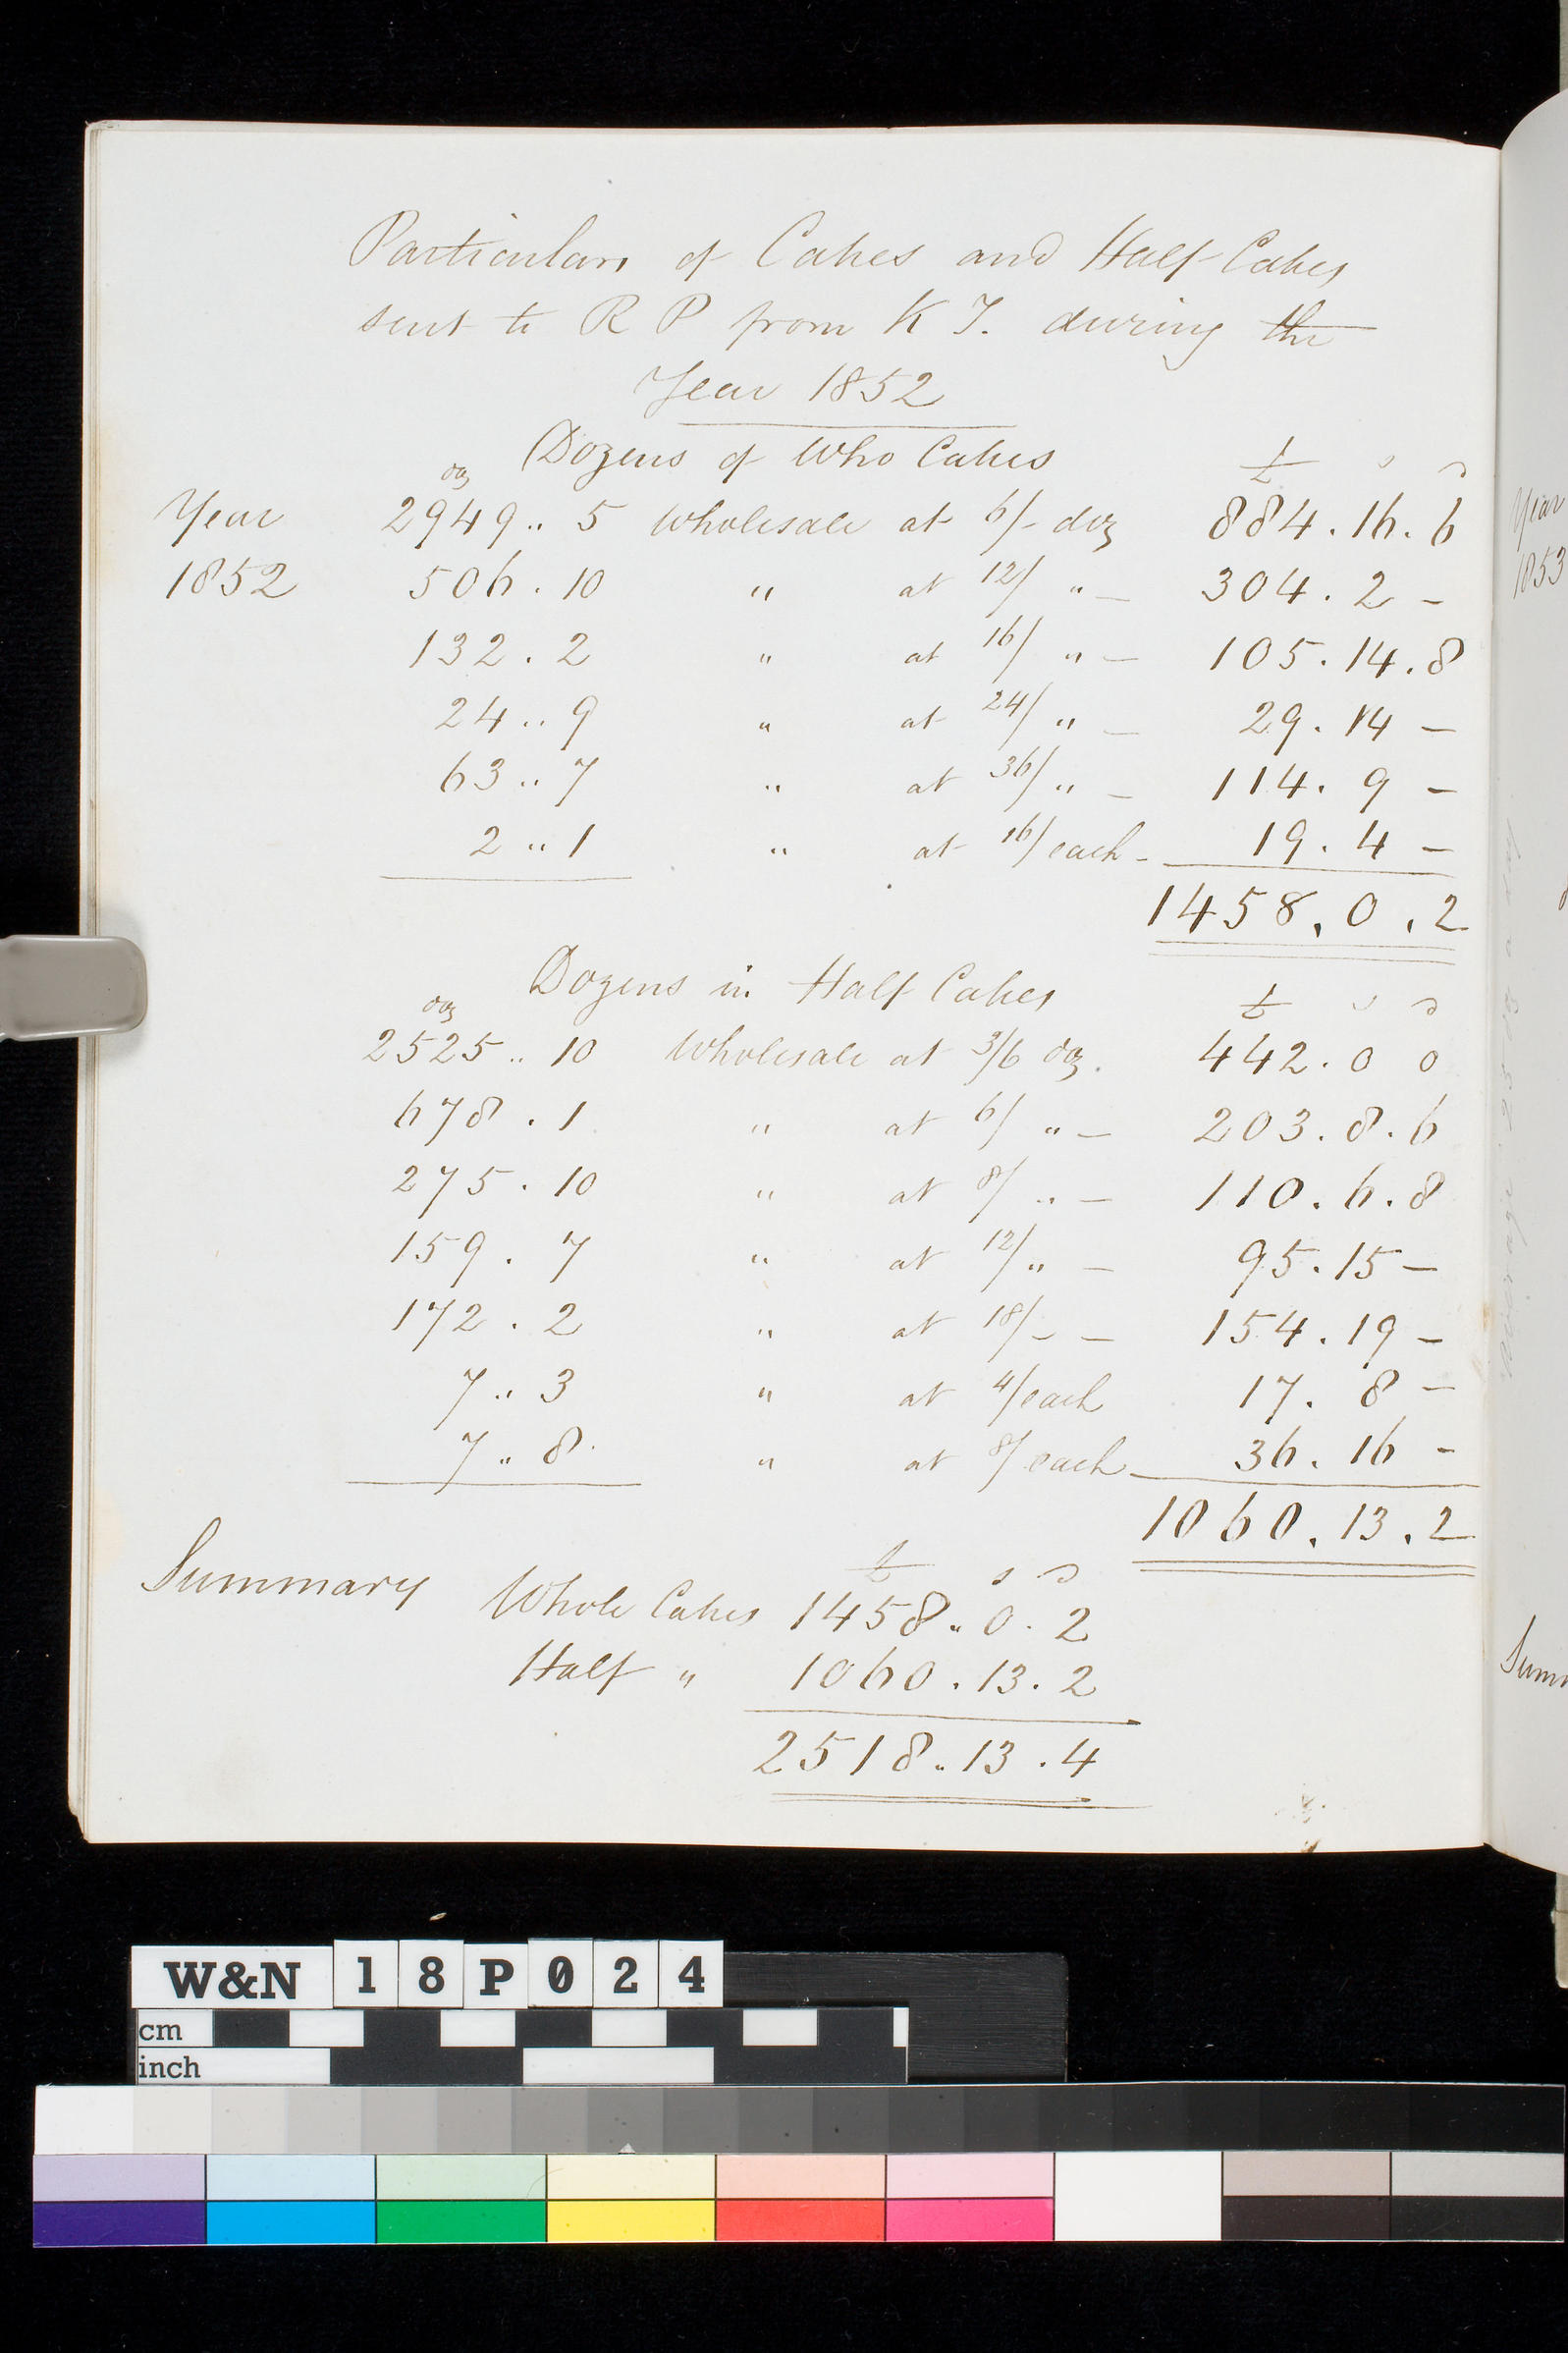 Particulars of Cakes and Half Cakes
sent to R P from K T. during the
Year 1852
Dozens of Who Cakes
doz £ s d
Year 2949 .. 5 Wholesale at 6/- doz 884 . 16 . 6
1852 506 . 10 " at 12/ " — 304 . 2 —
132 . 2 " at 16/ " — 105 . 14 . 8
24 .. 9 " at 24/ " — 29 . 14 —
63 .. 7 " at 36/ " — 114 . 9 —
2 .. 1 " at 16/ each — 19 . 4 —
1458 . 0 . 2
Dozens in Half Cakes
doz £ s d
2525 .. 10 Wholesale at 3/6 doz. 442 . 0 0
678 . 1 " at 6/ " — 203 . 8 . 6
275 . 10 " at 8/ " — 110 . 6 . 8
159 . 7 " at 12/ " — 95 . 15 —
172 . 2 " at 18/ – — 154 . 19 —
7 .. 3 " at 4/ each 17 . 8 —
7 .. 8 " at 8/ each — 36 . 16 —
1060 . 13 . 2
£ s d
Summary Whole Cakes 1458 .. 0 . 2
Half " 1060 . 13 . 2
2518 .. 13 . 4
Year
1853
W&N 18P024
cm
inch